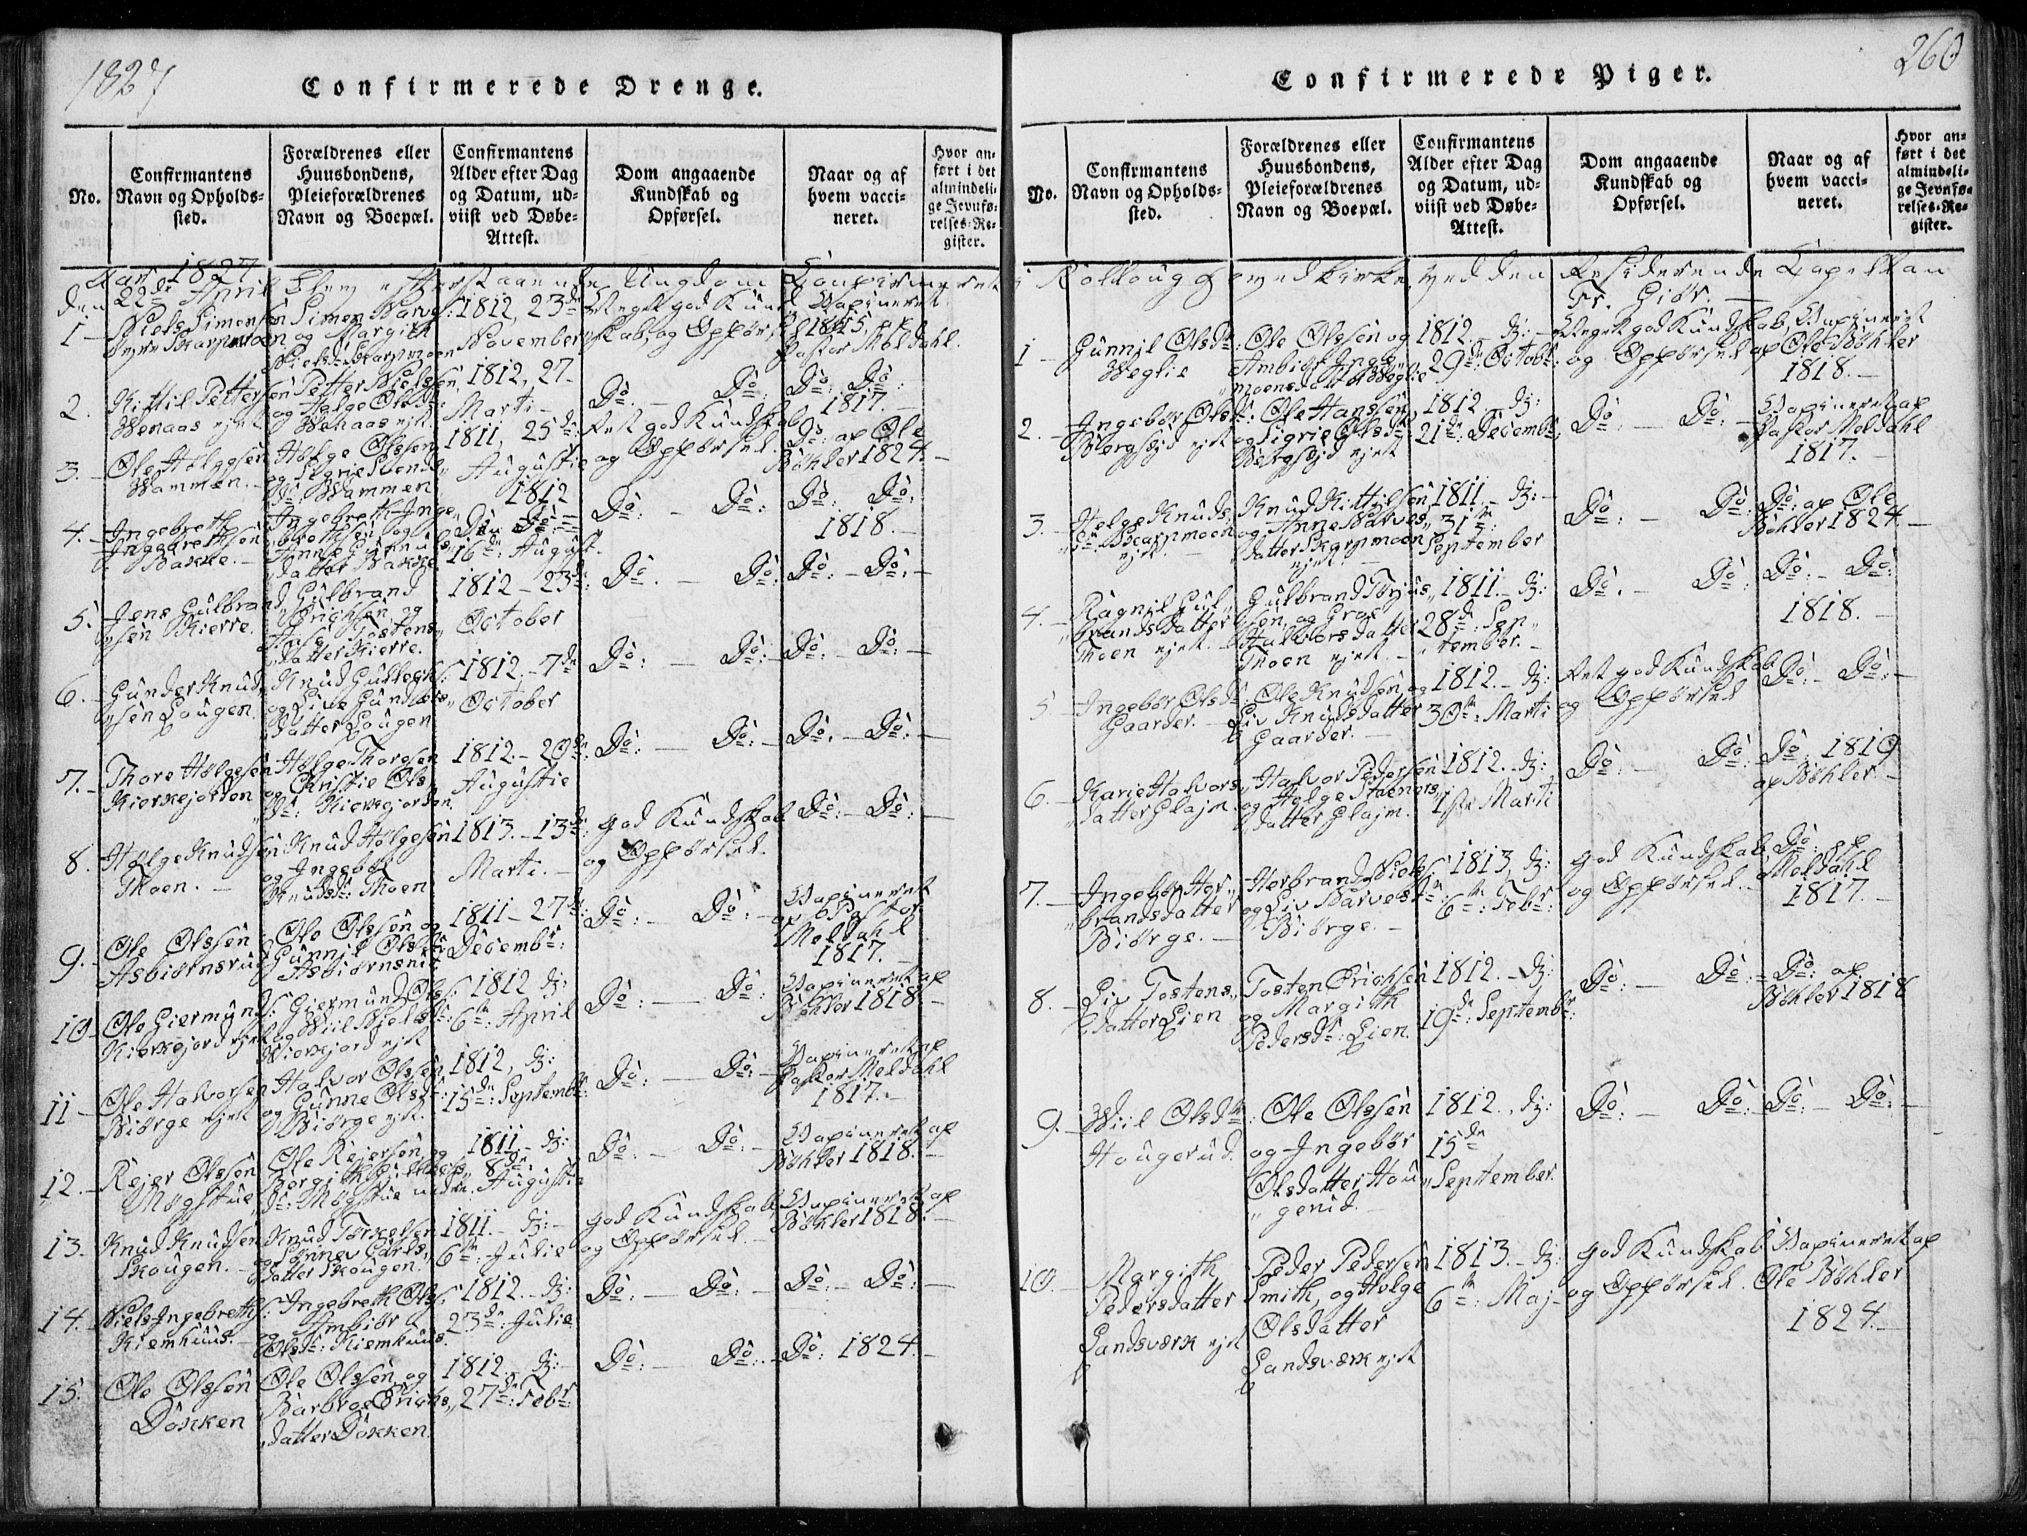 1827
Confirmerede Drenge.
No.
Confirmantens
Navn og Opholds-
sted.
Forældrenes eller
Huusbondens,
Pleieforældrenes
Navn og Boepæl.
Confirmantens
Alder efter Dag
og Datum, ud-
viist ved Døbe-
Attest.
Dom angaaende
Kundskab og
Opførsel.
Naar og af
hvem vacci-
neret.
Hvor an-
ført i det
almindeli-
ge Jevnfø-
relses-Re-
gister.
1827
den 22de April blev efterstaaende Ungdom Confirmeret
1 Niels Simensen
Skarpmoen
og Margith
Skarpmoen
1812, 23de
November
Meget god Kund-
skab, og Opførs:
Vaxineret
1815, af
Pastor Meldahl.
2. Kittil Pettersen
Wenaas ejet
Petter Nielsen
og Helge Olsdr:
Wenaas ejt.
1812, 27
Marti
Do: Do:
Do: Do:
1817.
3. Ole Helgesen
Wammen.
Helge Olssen
og Sigrie Svends
Dr. Wammen
1811, 25de
Augustie
Ret god Kundskab
og Opførsel.
Do: af Ole
Bøhler 1824.
4. Ingebreth
Ingebrethsen
Bakke.
Ingebreth Inge-
brethsen og
Anne Gunuls
datter Bakke
1812
Do: Do:
16de: August.
Do: Do:
Do: Do:
1818.
5. Jens Gulbrand
sen Kierre.
Gulbrand
Erichsen og
Tostens
datter Kierre.
1812 - 23de:
October
Do. Do:
Do: Do:
6. Gunder Knud
sen Lougen.
Knud Gulleghs:
og Live Gunders
datter Lougen
1812. 7de
October
Do: Do:
Do: Do:
7. Thore Helgesen
Kierkejorden
Helge Thoresen
og Christie Ols
Dr: Kierkejorden
1812. - 20de
Augustie
Do: Do:
Do: Do:
8. Helge Knudsen
Moen.
Knud Helgesen
og Ingebør
Knudsdr: Moen
1813. - 13de
Marti.
god Kundskab
og Opførsel.
Do: Do:
9. Ole Olssen
Asbiørnsrud
Ole Olssen og
Gunnil Olsdr
Asbiørnsrud
1811 - 27de:
Decembr:
Do: Do:
Vaxineret
af Pastor
Meldahl
1817.
10 Ole Giermunds:
Kierkejord ejet
Giermund Ols:
og Wiil Nielsdr:
Kierkejord ejt
1812 d:
6te: April
Do: Do:
Vaxineret af
Bøhler 1818
11 Ole Halvorsen
Biørge ejet
Halvor Olssen
og Gunne Olsdr:
Biørge ejt.
1812, d:
15de: Septembr:
Do: Do:
Vaxineret af
Pastor Meldahl
1817.
12. Rejer Olssen
Møgstue
Ole Rejersen og
Dr: Møgstue
1811 - d:
8de:
Augustie
Do: Do:
Vaxineret af
Bøhler 1818.
13. Knud Knudsen
Skougen.
Knud Torkelsen
og Sønnev Carls
datter Skougen.
1811 - d:
6te: Julie
god Kundskab
og Opførsel.
Vaxineret af
Bøhler 1818.
14. Niels Ingebreths:
Kiemhuus.
Ingebreth Ols:
og Ambiør
Olsdr: Kiemhuus
1812. - d:
23de: Julie
Do: Do:
Do: Do:
15. Ole Olssen
Døkken
Ole Olssen og
Barbroe Erichs
datter Døkken.
1812. - d:
27de: Febr
Do: Do:
Do: 1824.
260
Confirmerede Piger.
No.
Confirmantens
Navn og Opholds-
sted.
Forældrenes eller
Huusbondens,
Pleieforældrenes
Navn og Boepæl.
Confirmantens
Alder efter Dag
og Datum, ud-
viist ved Døbe-
Attest.
Dom angaaende
Kundskab og
Opførsel.
Naar og af
hvem vacci-
neret.
Hvor an-
ført i det
almindeli-
ge Jevnfø-
relses-Re-
gister.
i Rolloug Hovedkirke ved den Residerende Capellan
Fr. Giør.
1 Gunnil Olsdr:
Weglie
Ole Olssen og
Ambiør Inge
Weglie
1812 d:
29de: Octobr:
Meget god Kundskab
og Opførsel
Vaxineret
af Ole Bøhler
1818.
2. Ingebør Olsdr:
Bergsøjd ejet
Ole Hanssen
og Sigrie Olsdr
Bergsøjd ejet
1812 d:
21de: Decembr
Do: Do:
Vaxineret af
Pastor Meldahl
1817.
3. Helge Knuds
Dr: Skarpmoen
ejet.
Knud Kittilsen
og Anne Narves
datter Skarpmoen
ejet.
1811 - d:
31te:
September
Do: Do:
Do: af Ole
Bøhler 1824.
4. Ragnil Gul
brands datter
Moen ejet.
Gulbrand Torjus
sen, og Groe
Halvorsdatter
Moen ejet.
1811. - d:
28de: Sep-
tember.
Do. Do:
Do: Do:
1818.
5 Ingebør Olsdr
Gaarder.
Ole Knudsen og
Liv Knudsdatter
Gaarder.
1812. - d:
30te: Marti
Ret god Kundskab
og Opførsel
Do: Do:
6. Karie Halvors
datter Glajm.
Halvor Pedersen
og Helge Steners
datter Glajm.
1812. d:
1ste Marti
Do: Do:
Do: 1819
af Bøhler.
7. Ingebør Her-
brandsdatter
Biørge.
Herbrand Niels:
og Liv Narvesdr:
Biørge.
1813, d:
6te: Febr:
god Kundskab
og Opførsel.
Do: af
Meldahl
1817.
8. Liv Tostens
datter Lien
Tosten Erichsen
og Margith
Pedersdr: Lien.
1812. - d:
19de: Septembr:
Do: Do:
Do: af
Bøhler 1818
9. Wiil Olsdr:
Hougerud.
Ole Olssen
og Ingebør
Olsdatter Hou
gerud.
1812., d:
15de
September.
Do: Do:
Do: Do:
10. Margith
Pedersdatter
Landsværk ejet
Peder Pedersen
Smith, og Helge
Olsdatter
Landsværk ejet
1813. - d:
6te: Maj
god Kundskab
og Opførsel
Vaxineret af
Ole Bøhler
1824.